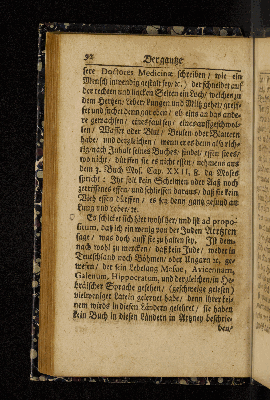 92 Der gantze
sere Doctores Medicinæ schreiben / wie ein
Mensch inwendig gestalt sey / ꝛc. / der schneidet auff
der rechten und lincken Seiten ein Loch / welches zu
dem Hertzen / Leber / Lungen und Miltz gehet / greif-
fet und suchet denn daneben / ob eins an das ande-
re gewachsen / eines faul sey / eines auffgeschwol-
len / Wasser oder Blut / Beulen oder Blattern
habe / und dergleichen /
rig / nach Inhalt seines Buches / findet / essen sie es /
wo nicht / dürffen sie es nicht essen / nehmens aus
dem 2. Buch Mos. Cap. XXII, 8. da Moses
spricht: Ihr solt kein Schelmen oder Aaß noch
zerrissenes essen und schliessen daraus / daß sie kein
Vieh essen dörffen / es sey denn gantz gesund an
Lung und Leber / ꝛc.
Es schicket sich hier wohl her / und ist ad propo-
situm, daß ich ein wenig von der Jüden Aertzten
sage / was doch auff sie zu halten sey. Ist dem-
nach wohl zu mercken / daß kein Jude / weder in
Teutschland noch Böhmen / oder Ungarn ꝛc. ge-
wesen / der sein Lebelang Mesuæ, Avicennam,
Galenum, Hippocratum, und dergleichen / in He-
bräischer Sprache gesehen / (geschweige gelesen)
vielweniger Latein gelernet habe / denn ihrer kei-
nem wirds in diesen Ländern gelehret / sie haben
kein Buch in diesen Ländern in Artzney beschrie-
ben /